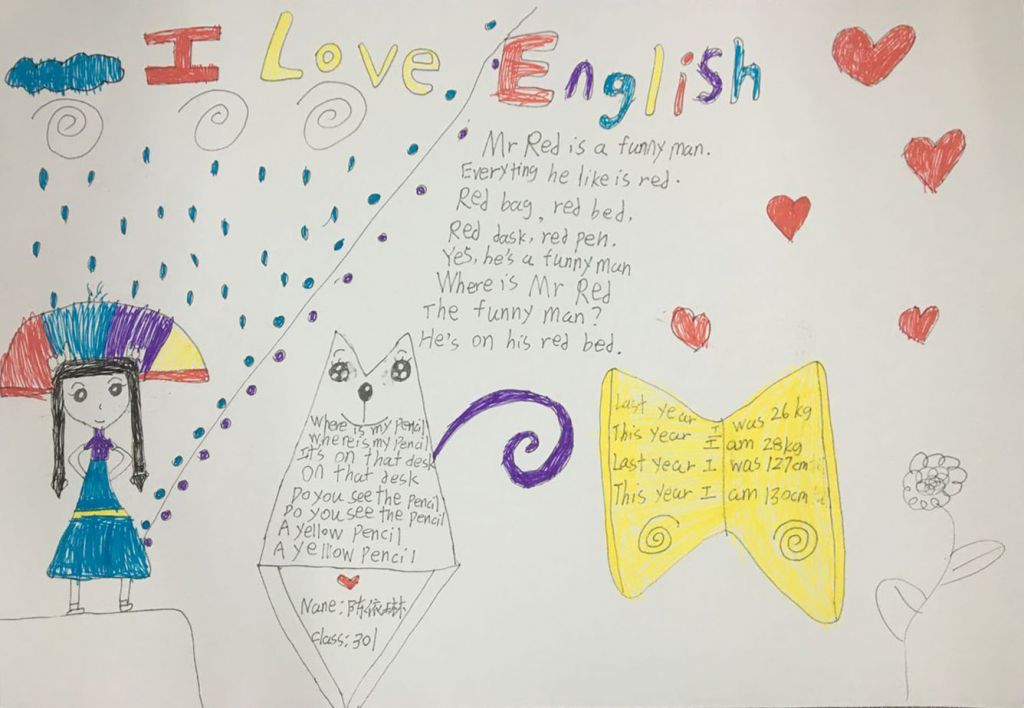 I Love English
Mr Red is a funny man.
Everyting he like is red.
Red bag, red bed,
Red dask, red pen.
Yes, he's a funny man
Where is Mr Red
The funny man?
He's on his red bed.
where is my pencil
where is my pencil
It's on that desk
on that desk
Do you see the pencil
Do you see the pencil
A yellow pencil
A yellow pencil
Name: 陈依琳
class: 301
Last year I was 26 kg
This year I am 28 kg
Last year I was 127cm
This year I am 130cm